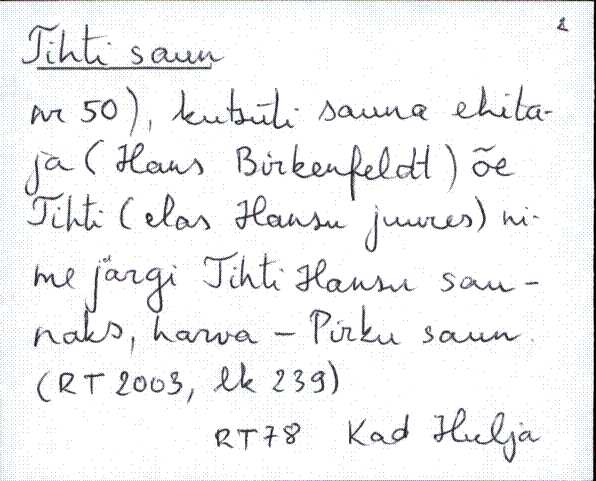 2
Tihti saun
nr 50), kutsuti sauna ehita-
ja (Hans Birkenfeldt) õe
Tihti (elas Hansu juures) ni-
me järgi Tihti Hansu sau-
naks, harva - Pirku saun.
(RT 2003, lk 239)
RT78 Kad Hulja